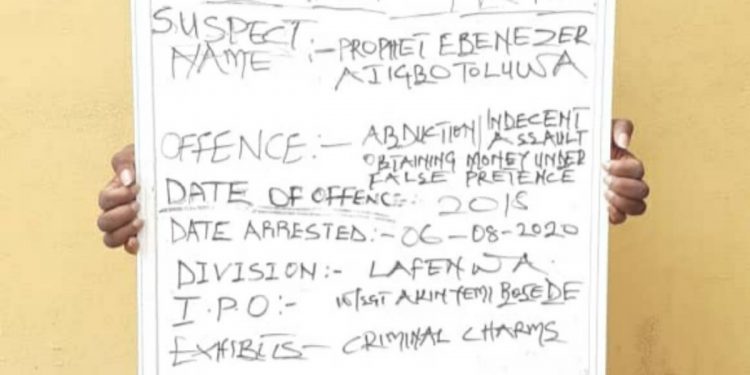 SUSPECT
NAME :- PROPHET EBENEZER
AJIGBOTOLUWA
OFFENCE:- ABDUCTION/ INDECENT
ASSAULT
OBTAINING MONEY UNDER
FALSE PRETENCE
DATE OF OFFENCE:- 2015
DATE ARRESTED:- 06-08-2020
DIVISION:- LAFENWA.
I.P.O:- W/SGT AKINYEMI BOSEDE
EXHIBITS- CRIMINAL CHARMS